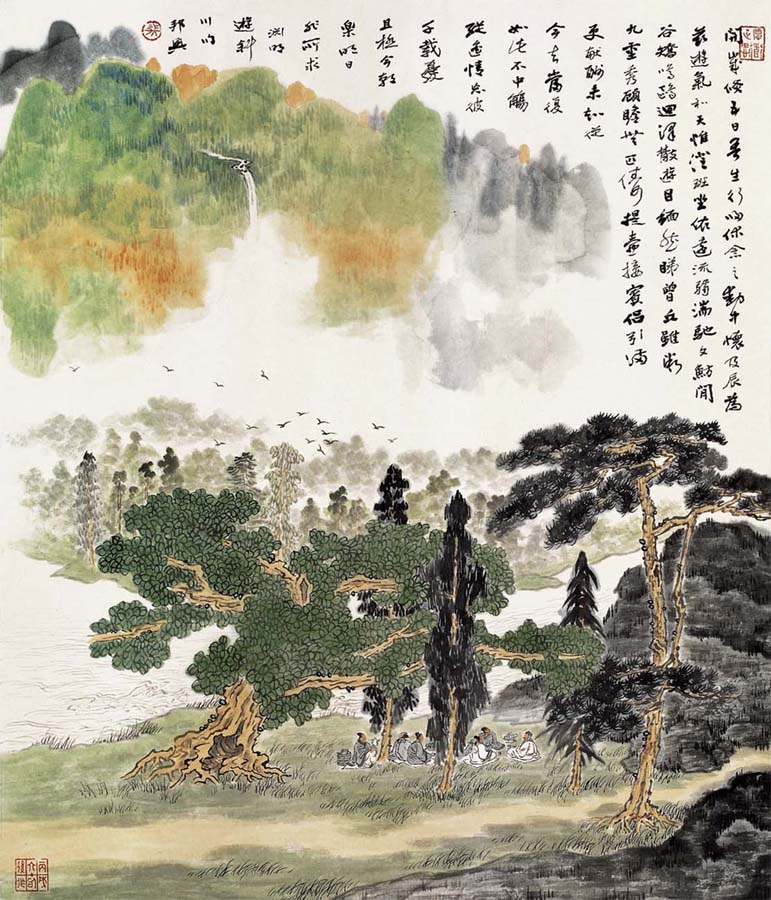 開歲倏五日吾生行歸休念之動中懷及辰為
茲遊氣和天惟澄班坐依遠流弱湍馳文魴閒
谷矯鳴鷗迴澤散遊目緬然睇曾丘雖微
九重秀顧瞻無匹儔提壺接賓侶引滿
更献酬未知從
今去當復
如此不中觴
縱遙情忘彼
千載憂
且極今朝
樂明日
非所求
淵明
遊斜
川
邦興